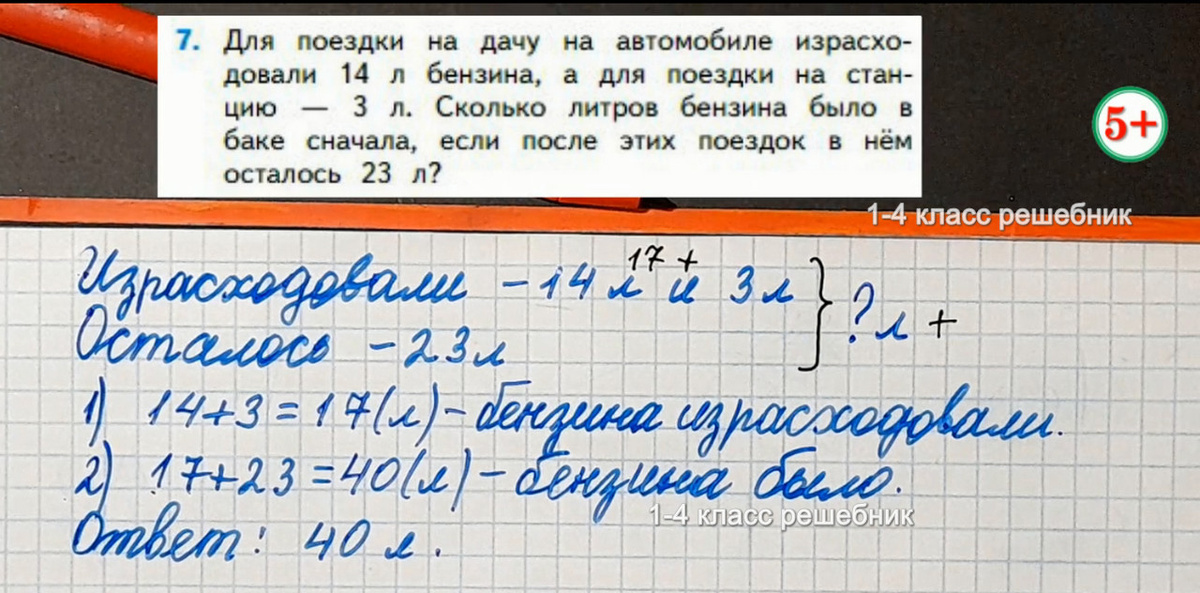 7. Для поездки на дачу на автомобиле израсхо-
довали 14 л бензина, а для поездки на стан-
цию — 3 л. Сколько литров бензина было в
баке сначала, если после этих поездок в нём
осталось 23 л?
5+
1-4 класс решебник
17 +
Израсходовали - 14 л и 3 л } ? л +
Осталось - 23 л
1) 14+3=17(л) - бензина израсходовали.
2) 17+23=40(л) - бензина было.
1-4 класс решебник
Ответ: 40 л.